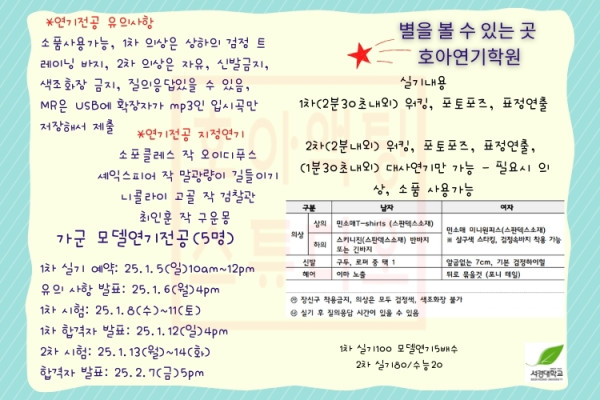 *연기전공 유의사항
소품사용가능, 1차 의상은 상하의 검정 트
레이닝 바지, 2차 의상은 자유, 신발금지,
색조화장 금지, 질의응답있을 수 있음,
MR은 USB에 확장자가 mp3인 입시곡만
저장해서 제출
*연기전공 지정연기
소포클레스 작 오이디푸스
셰익스피어 작 말괄량이 길들이기
니콜라이 고골 작 검찰관
최인훈 작 구운몽
가군 모델연기전공(5명)
1차 실기 예약: 25.1.5(일)10am~12pm
유의 사항 발표: 25.1.6(월)4pm
1차 시험: 25.1.8(수)~11(토)
1차 합격자 발표: 25.1.12(일)4pm
2차 시험: 25.1.13(월)~14(화)
합격자 발표: 25.2.7(금)5pm
별을 볼 수 있는 곳
호아연기학원
실기내용
1차(2분30초내외) 워킹, 포토포즈, 표정연출
2차(2분내외) 워킹, 포토포즈, 표정연출,
(1분30초내외) 대사연기만 가능 - 필요시 의
상, 소품 사용가능
구분 남자 여자
의상 상의 민소매T-shirts (스판덱스소재) 민소매 미니원피스(스판덱스소재)
※ 살구색 스타킹, 검정속바지 착용 가능
하의 스키니진(스판덱스소재) 반바지
또는 긴바지
신발 구두, 로퍼 중 택 1 앞굽없는 7cm, 기본 검정하이힐
헤어 이마 노출 뒤로 묶을것 (포니 테일)
㉮ 장신구 착용금지, 의상은 모두 검정색, 색조화장 불가
㉯ 실기 후 질의응답 시간이 있을 수 있음
1차 실기100 모델연기15배수
2차 실기80/수능20
서경대학교
호아액팅
스튜디오